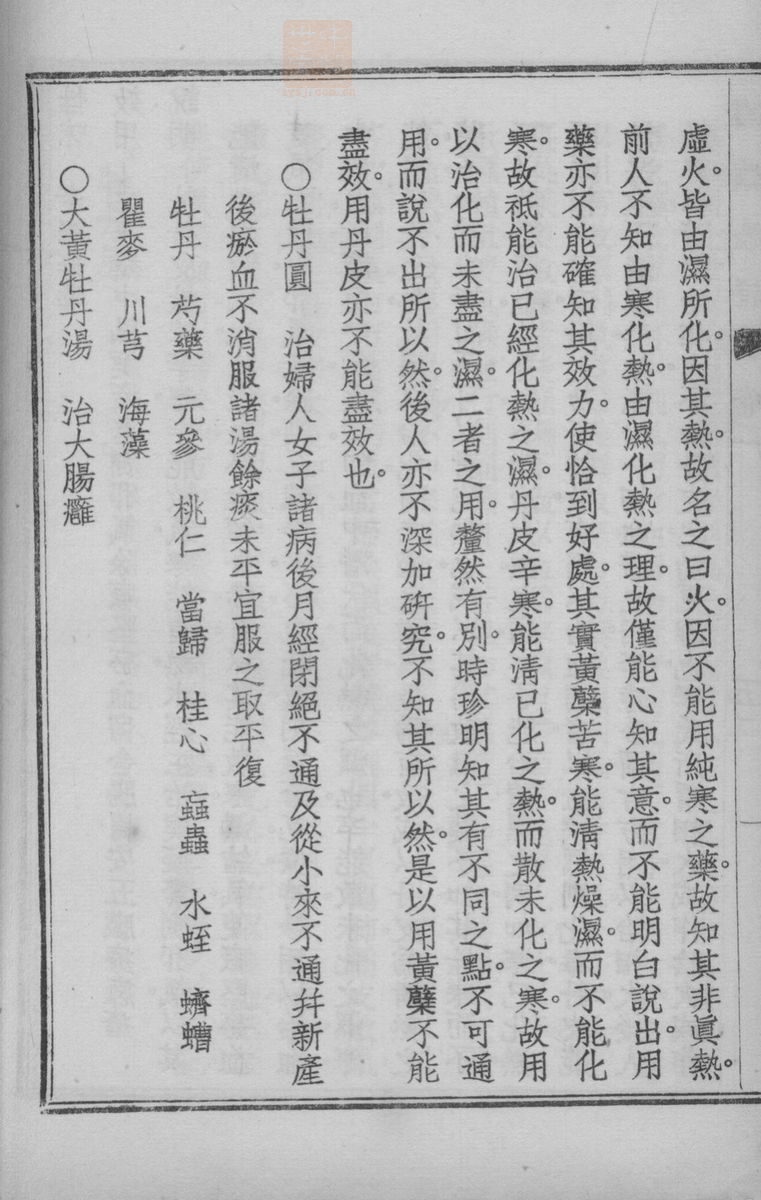 虛火。皆由濕所化。因其熱。故名之曰火。因不能用純寒之藥。故知其非眞熱。
前人不知由寒化熱。由濕化熱之理。故僅能心知其意。而不能明白說出。用
藥亦不能確知其效力。使恰到好處。其實黃蘗苦寒。能淸熱燥濕。而不能化
寒。故祇能治已經化熱之濕。丹皮辛寒。能淸已化之熱。而散未化之寒。故用
以治化而未盡之濕。二者之用。釐然有別。時珍明知其有不同之點。不可通
用。而說不出所以然。後人亦不深加硏究。不知其所以然。是以用黃蘗不能
盡效。用丹皮亦不能盡效也。
○牡丹圓　治婦人女子諸病後月經閉絕不通及從小來不通幷新產
後瘀血不消服諸湯餘痰未平宜服之取平復
牡丹　芍藥　元參　桃仁　當歸　桂心　蝱蟲　水蛭　蠐螬
瞿麥　川芎　海藻
○大黃牡丹湯　治大腸癰